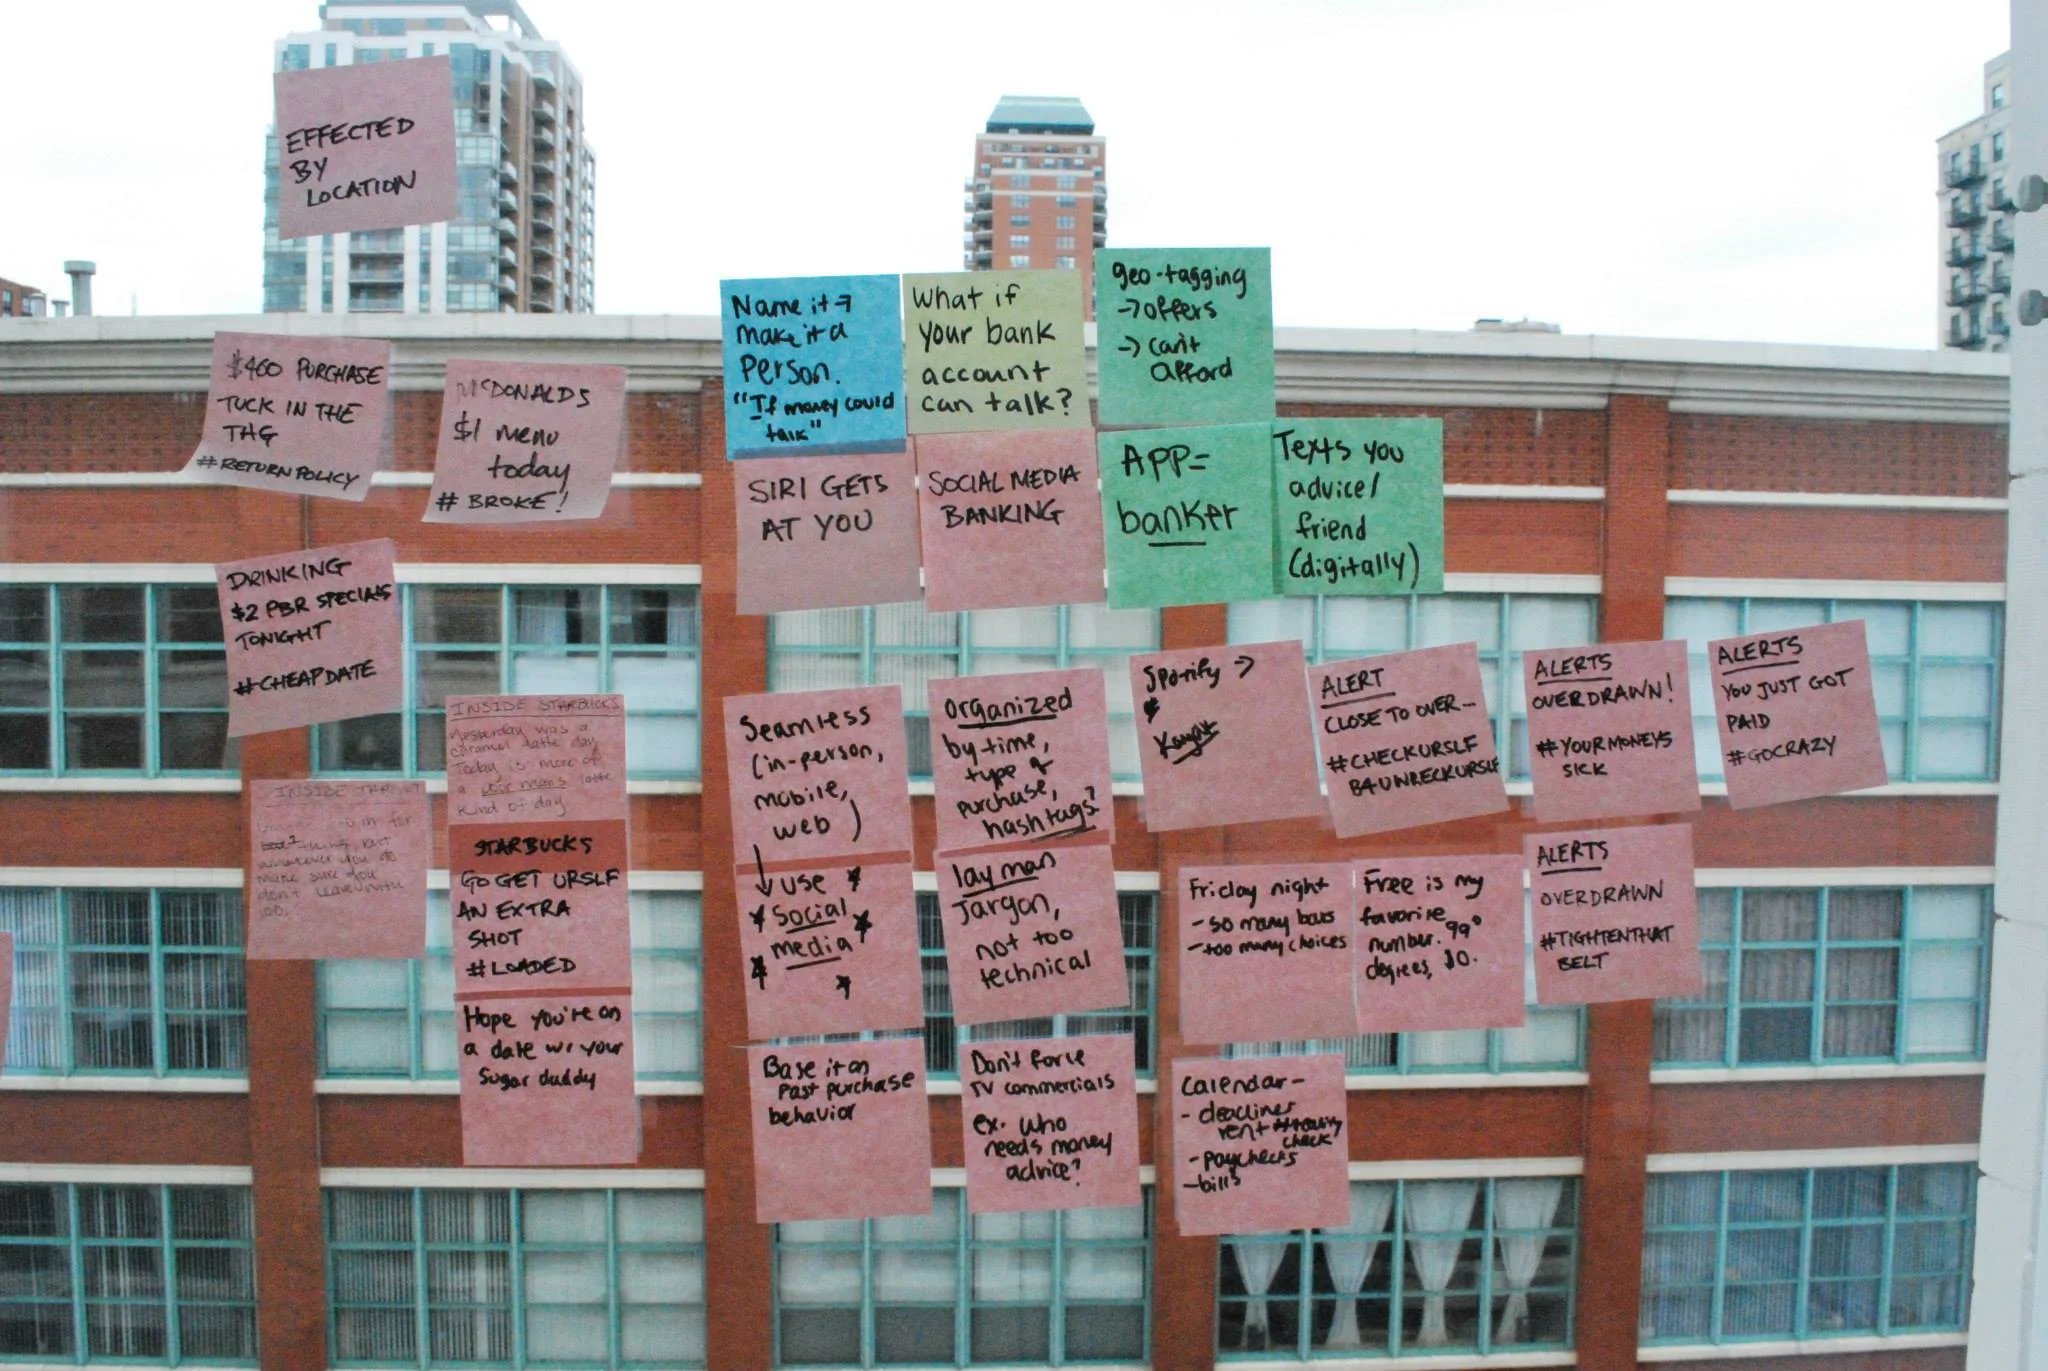 EFFECTED
BY
LOCATION
$460 PURCHASE
TUCK IN THE
THG
#RETURNPOLICY
MCDONALDS
$1 menu
today
# BROKE!
DRINKING
$2 PBR SPECIALS
TONIGHT
#CHEAPDATE
INSIDE STARBUCKS
Yesterday was a
caramel latte day
Today is more of
a poor mans latte
kind of day
INSIDE
in for
thing, but
whatever you do
make sure you
don't leave with
STARBUCKS
GO GET URSLF
AN EXTRA
SHOT
#LOADED
Hope you're on
a date w/ your
Sugar daddy
Name it →
make it a
Person.
"If money could
talk"
What if
your bank
account
can talk?
geo-tagging
→ offers
→ can't
afford
SIRI GETS
AT YOU
SOCIAL MEDIA
BANKING
APP=
banker
Texts you
advice/
friend
(digitally)
Seamless
(in-person,
mobile,
web)
organized
by time,
type of
purchase,
hashtags?
Spotify →
Kayak
ALERT
CLOSE TO OVER...
#CHECKURSLF
B4UNRECKURSLF
ALERTS
OVERDRAWN!
#YOURMONEYS
SICK
ALERTS
YOU JUST GOT
PAID
#GOCRAZY
use
social
media
lay man
Jargon,
not too
technical
Friday night
- so many bars
- too many choices
Free is my
favorite
number. 99°
degrees, $0.
ALERTS
OVERDRAWN
#TIGHTENTHAT
BELT
Base it on
Past purchase
behavior
Don't force
TV commercials
ex. who
needs money
advice?
Calendar-
- deadlines
rent #reality
check
- paychecks
- bills